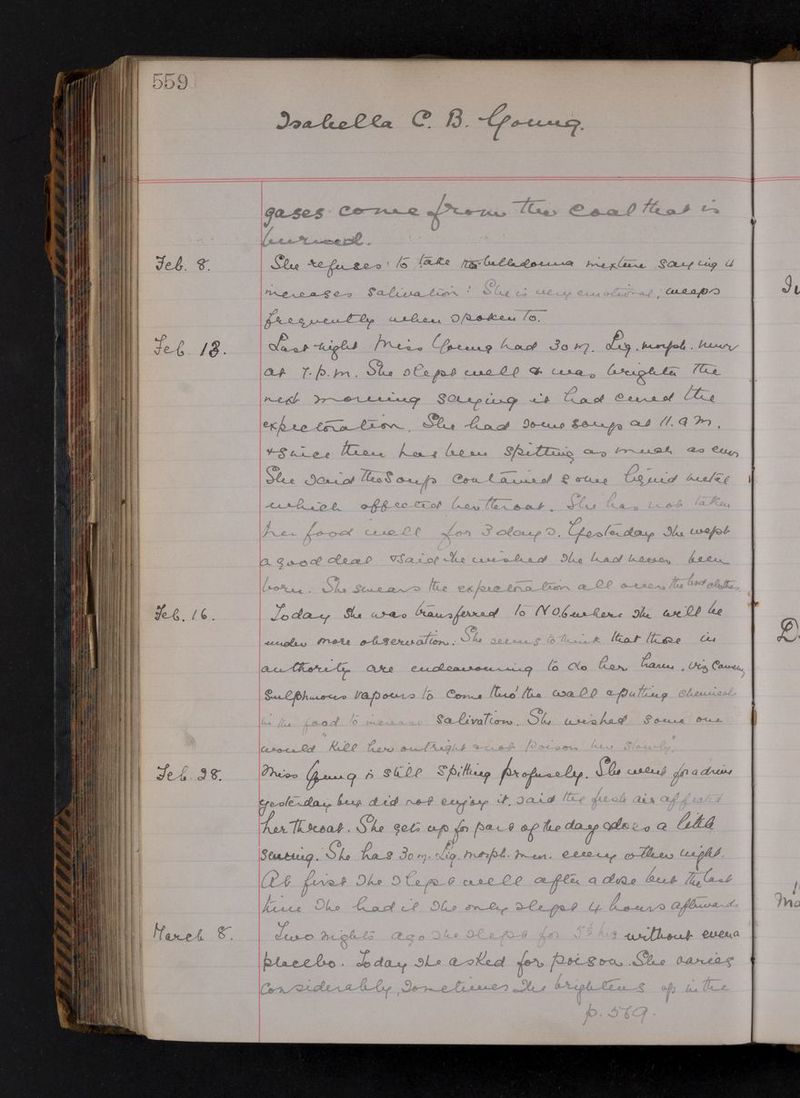 559
Isabella C. B. Young.
gases come from the coal that is
burned.
Feb. 8. She refuses to take the belladonna mixture saying it
increases salivation. She is very emotional, weeps
frequently when spoken to.
Feb. 13. Last night Miss Young had 30 m. Liq. morph. mur
at 7. p.m. She slept well & was brighter the
next morning saying it had cured the
expectoration. She had some soup at 11. a m.
& since then has been spitting as much as ever
She said the soup contained some liquid metal
which affected her throat. She has not taken
her food well for 3 days. Yesterday she wept
a good deal & said she wished she had never been
born. She smears the expectoration all over the bed clothes
Feb. 16. Today she was transferred to where she will be
under more observation. She seems to think that those in
authority are endeavouring to do her harm, viz causing
sulphurous vapours to come thro' the wall & putting chemicals
in the food to increase salivation. She wished some one
would "kill her outright & not poison her slowly".
Feb. 28. Miss Young is still spitting profusely. She went for a drive
yesterday but did not enjoy it, said the fresh air affected
her throat. She gets up for part of the day & does a little
sewing. She has 30 m. Liq. morph. mur. every other night.
At first she slept well after a dose but the last
time she had it she only slept 4 hours afterwards
March 8. Two nights ago she slept for 5½ hrs without even a
placebo. Today she asked for poison. She varies
considerably, sometimes she brightens up in the
p. 569.